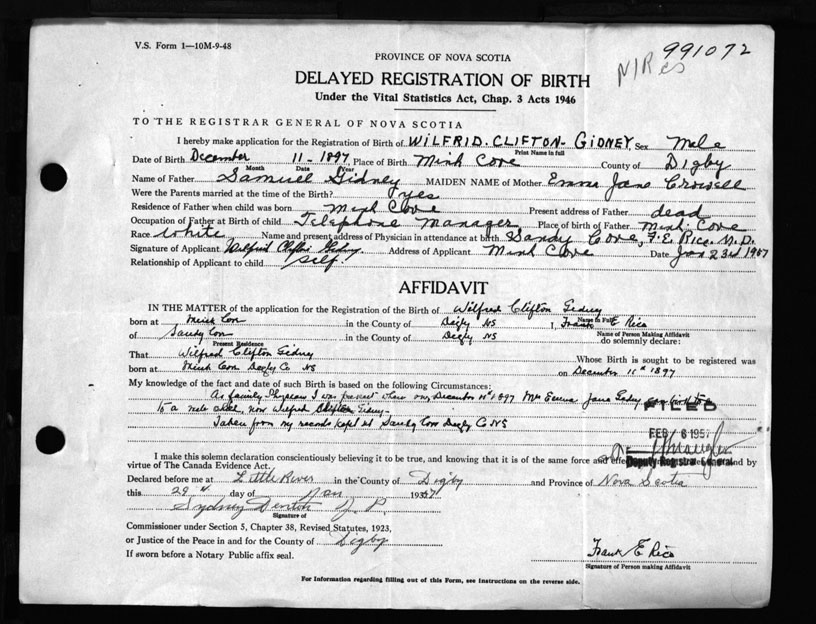 V.S. Form 1—10M-9-48
991072
N/R cs
PROVINCE OF NOVA SCOTIA
DELAYED REGISTRATION OF BIRTH
Under the Vital Statistics Act, Chap. 3 Acts 1946
TO THE REGISTRAR GENERAL OF NOVA SCOTIA
I hereby make application for the Registration of Birth of WILFRID. CLIFTON- GIDNEY Sex Male
Print Name in full
Date of Birth December 11 - 1897, Place of Birth Mink Cove County of Digby
Month Date Year
Name of Father Samuel Gidney MAIDEN NAME of Mother Emma Jane Crowell
Were the Parents married at the time of the Birth? yes
Residence of Father when child was born Mink Cove Present address of Father dead
Occupation of Father at Birth of child Telephone Manager Place of birth of Father Mink Cove
Race White Name and present address of Physician in attendance at birth Sandy Cove, F.E. Rice. M.D.
Signature of Applicant Wilfrid Clifton Gidney Address of Applicant Mink Cove Date Jan 23rd 1957
Relationship of Applicant to child self.
AFFIDAVIT
IN THE MATTER of the application for the Registration of the Birth of Wilfred Clifton Gidney
Name in Full
born at Mink Cove in the County of Digby NS I, Frank E Rice
Name of Person Making Affidavit
of Sandy Cove in the County of Digby NS do solemnly declare:
Present Residence
That Wilfred Clifton Gidney Whose Birth is sought to be registered was
born at Mink Cove Digby Co NS on December 11th 1897
My knowledge of the fact and date of such Birth is based on the following Circumstances:
As family Physician I was present when on December 11th 1897 Mrs Emma Jane Gidney gave birth to
To a male child, now Wilfred Clifton Gidney-
Taken from my records kept at Sandy Cove Digby Co NS
FILED
FEB 6 1957
Deputy Registrar General
I make this solemn declaration conscientiously believing it to be true, and knowing that it is of the same force and effect by
virtue of The Canada Evidence Act.
Declared before me at Little River in the County of Digby and Province of Nova Scotia
this 29th day of Jan 1957
Sydney Denton J. P.
Signature of
Commissioner under Section 5, Chapter 38, Revised Statutes, 1923,
or Justice of the Peace in and for the County of Digby
If sworn before a Notary Public affix seal.
Frank E Rice
Signature of Person making Affidavit
For Information regarding filling out of this Form, see Instructions on the reverse side.